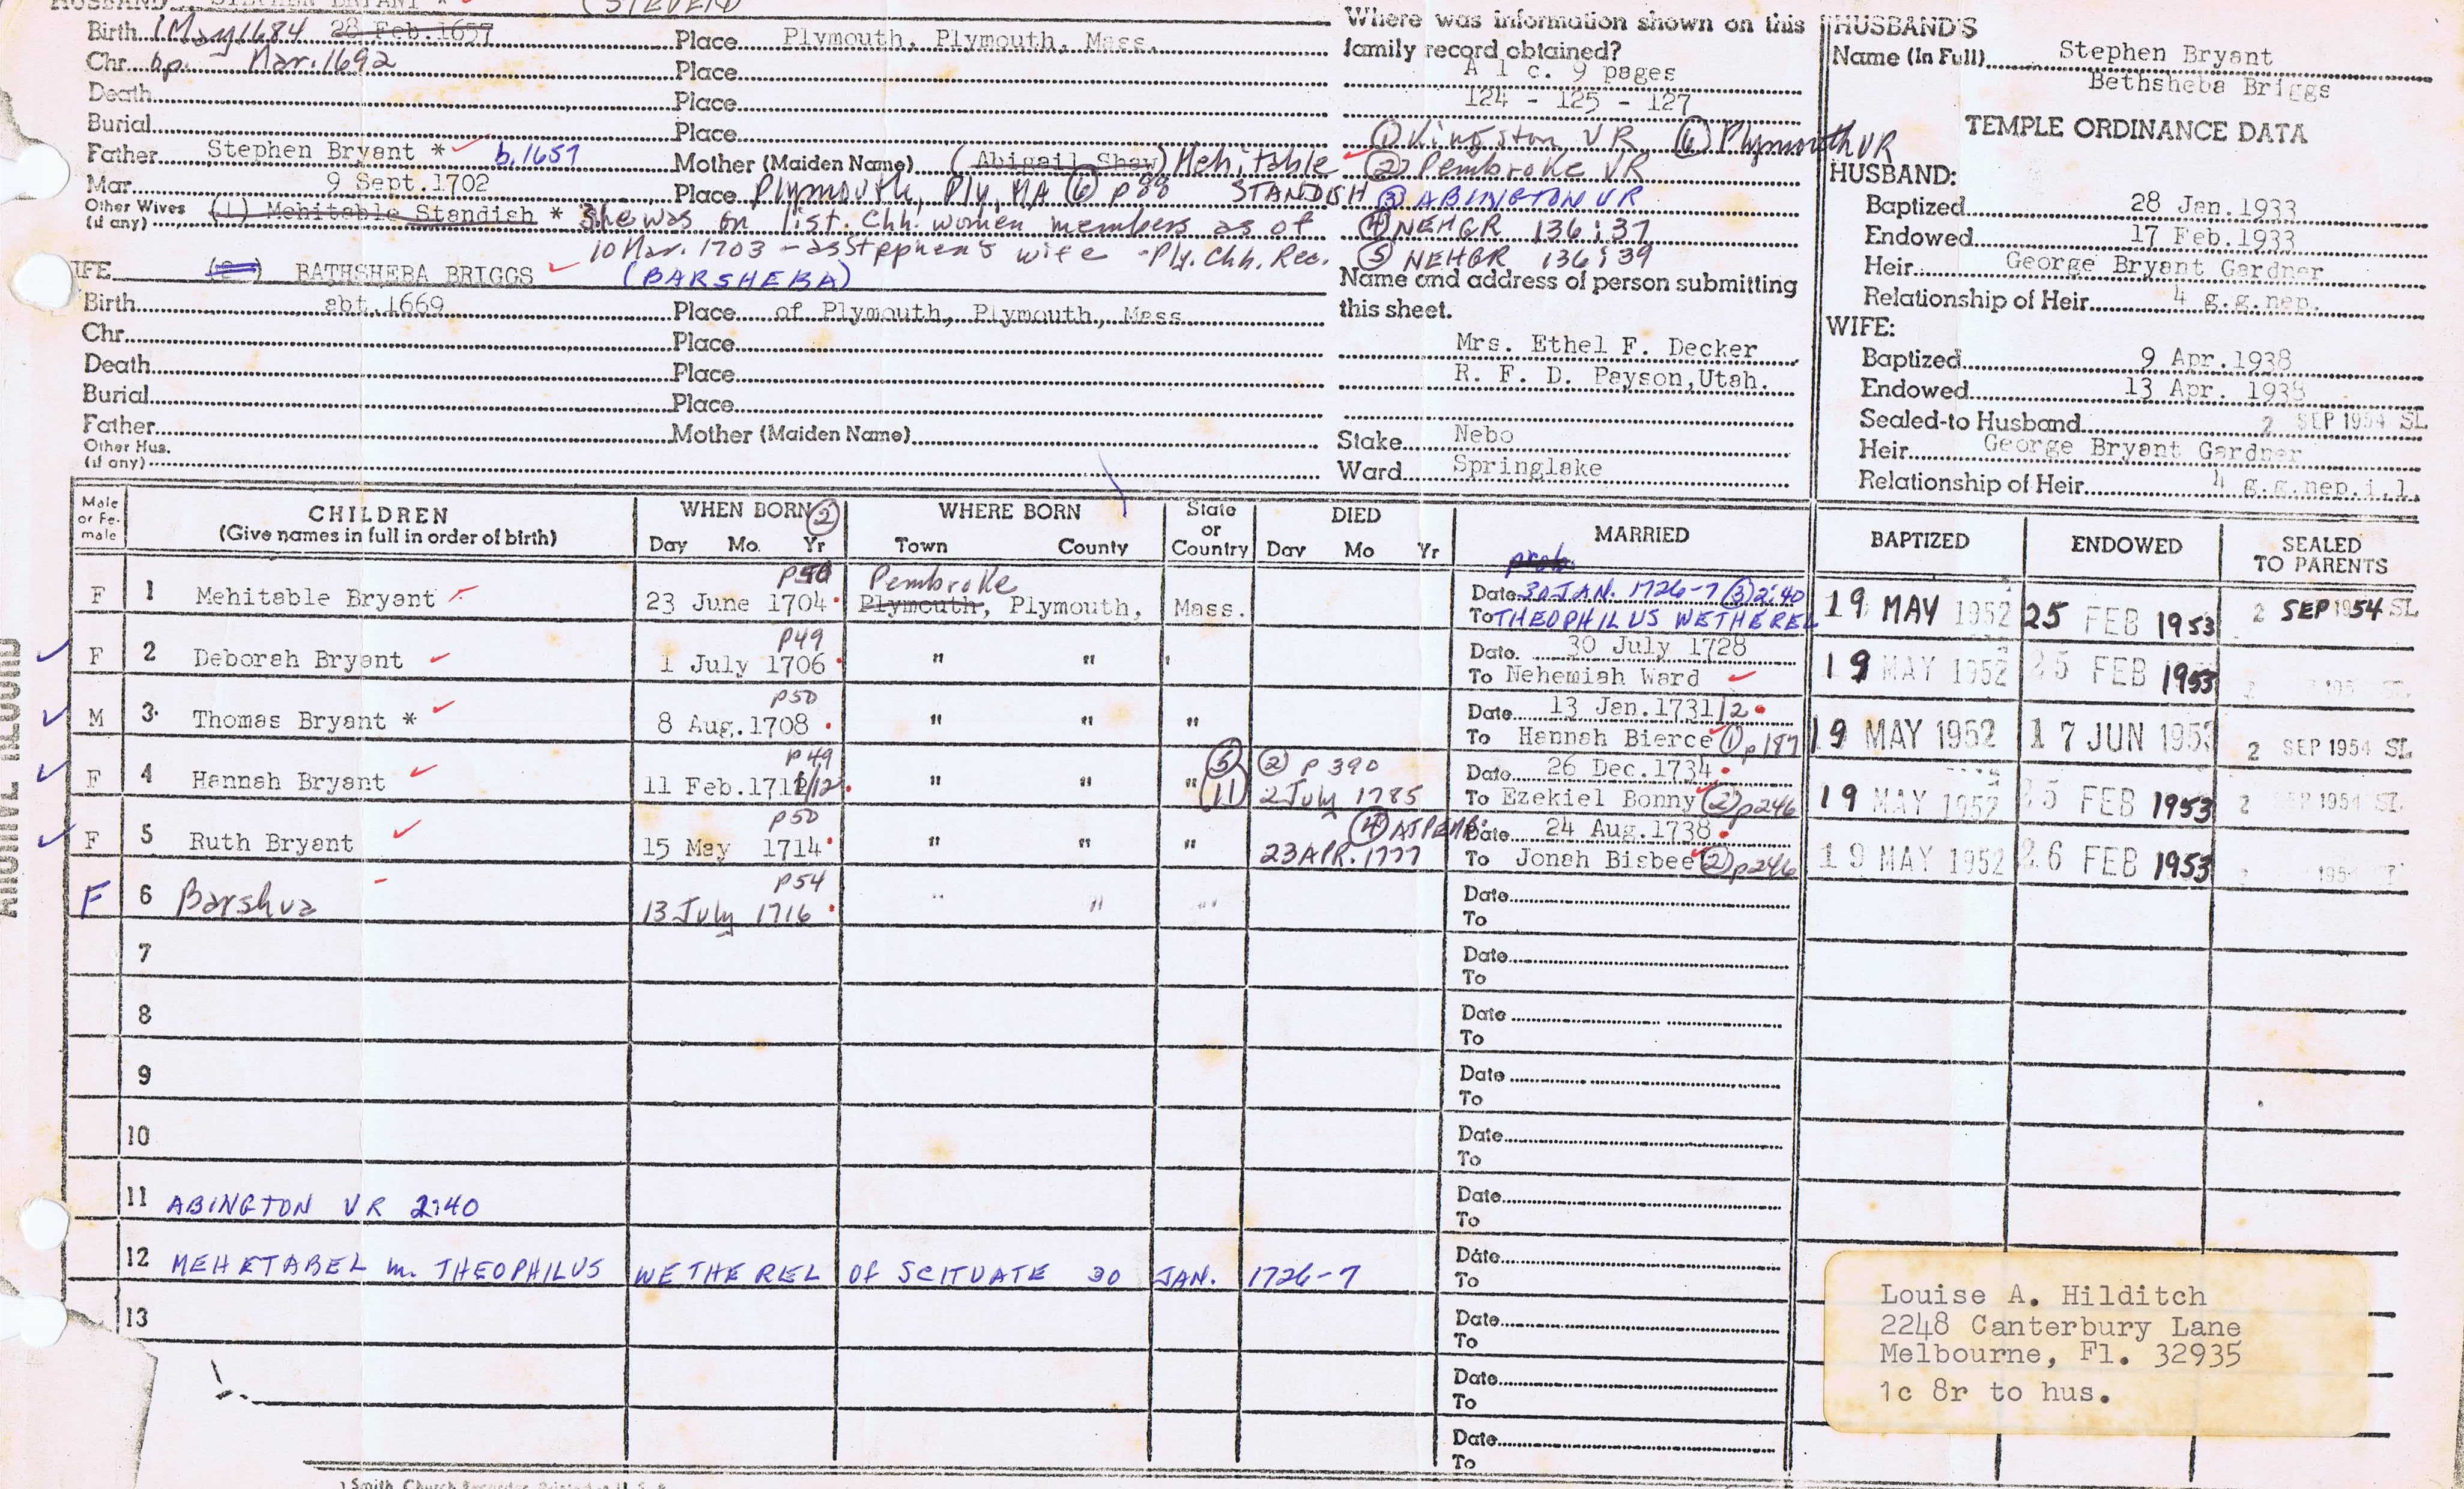 HUSBAND STEPHEN BRYANT * (STEVEN)
Birth 1 May 1684 28 Feb.1657 Place Plymouth, Plymouth, Mass.
Chr. bp. Mar. 1692 Place
Death Place
Burial Place
Father Stephen Bryant * b. 1657 Mother (Maiden Name) (Abigail Shaw) Mehitable
Mar. 9 Sept.1702 Place Plymouth, Ply, MA ⑥ p 88 STANDISH
Other Wives (if any) (1) Mehitable Standish * She was on list. Chh. women members as of
10 Mar. 1703 - as Stpphen's wife - Ply. Chh. Rec.
IFE (2) BATHSHEBA BRIGGS (BARSHEBA)
Birth abt.1669 Place of Plymouth, Plymouth, Mass
Chr. Place
Death Place
Burial Place
Father Mother (Maiden Name)
Other Hus.
(if any)
Where was information shown on this
family record obtained?
A 1 c. 9 pages
124 - 125 - 127
① Kingston VR ⑥ Plymouth VR
② Pembroke VR
③ ABINGTON VR
④ NEHGR 136:37
⑤ NEHGR 136:39
Name and address of person submitting
this sheet.
Mrs. Ethel F. Decker
R. F. D. Payson,Utah.
Stake Nebo
Ward Springlake
HUSBAND'S
Name (In Full) Stephen Bryant
Bethsheba Briggs
TEMPLE ORDINANCE DATA
HUSBAND:
Baptized 28 Jan.1933
Endowed 17 Feb.1933
Heir George Bryant Gardner
Relationship of Heir 4 g.g.nep.
WIFE:
Baptized 9 Apr.1938
Endowed 13 Apr. 1938
Sealed to Husband 2 SEP 1954 SL
Heir George Bryant Gardner
Relationship of Heir 4 g.g.nep.i.l.
Male or Female CHILDREN (Give names in full in order of birth) WHEN BORN ② Day Mo. Yr WHERE BORN Town County State or Country DIED Day Mo Yr MARRIED BAPTIZED ENDOWED SEALED TO PARENTS
prob.
p50 Pembroke Date 30 JAN. 1726-7 ③ 2:40
F 1 Mehitable Bryant 23 June 1704 Plymouth, Plymouth, Mass. To THEOPHILUS WETHEREL 19 MAY 1952 25 FEB 1953 2 SEP 1954 SL
p49 Date 30 July 1728
F 2 Deborah Bryant 1 July 1706 " " " To Nehemiah Ward 19 MAY 1952 25 FEB 1953
p50 Date 13 Jan.1731/2
M 3 Thomas Bryant * 8 Aug.1708 " " " To Hannah Bierce ① p 187 19 MAY 1952 17 JUN 1953 2 SEP 1954 SL
p49 ⑤ ② p 390 Date 26 Dec.1734
F 4 Hannah Bryant 11 Feb.1711/12 " " " (11) 2 July 1785 To Ezekiel Bonny ② p246 19 MAY 1952 25 FEB 1953 2 SEP 1954 SL
p50 ④ AT PEMB. Date 24 Aug.1738
F 5 Ruth Bryant 15 May 1714 " " " 23 APR. 1777 To Jonah Bisbee ② p246 19 MAY 1952 26 FEB 1953
p54 Date
F 6 Barshua 13 July 1716 " " " To
7 Date
To
8 Date
To
9 Date
To
10 Date
To
11 ABINGTON VR 2:40 Date
To
12 MEHETABEL m. THEOPHILUS WETHEREL OF SCITUATE 30 JAN. 1726-7 Date
To
13 Date
To
Date
To
Date
To
Louise A. Hilditch
2248 Canterbury Lane
Melbourne, Fl. 32935
1c 8r to hus.